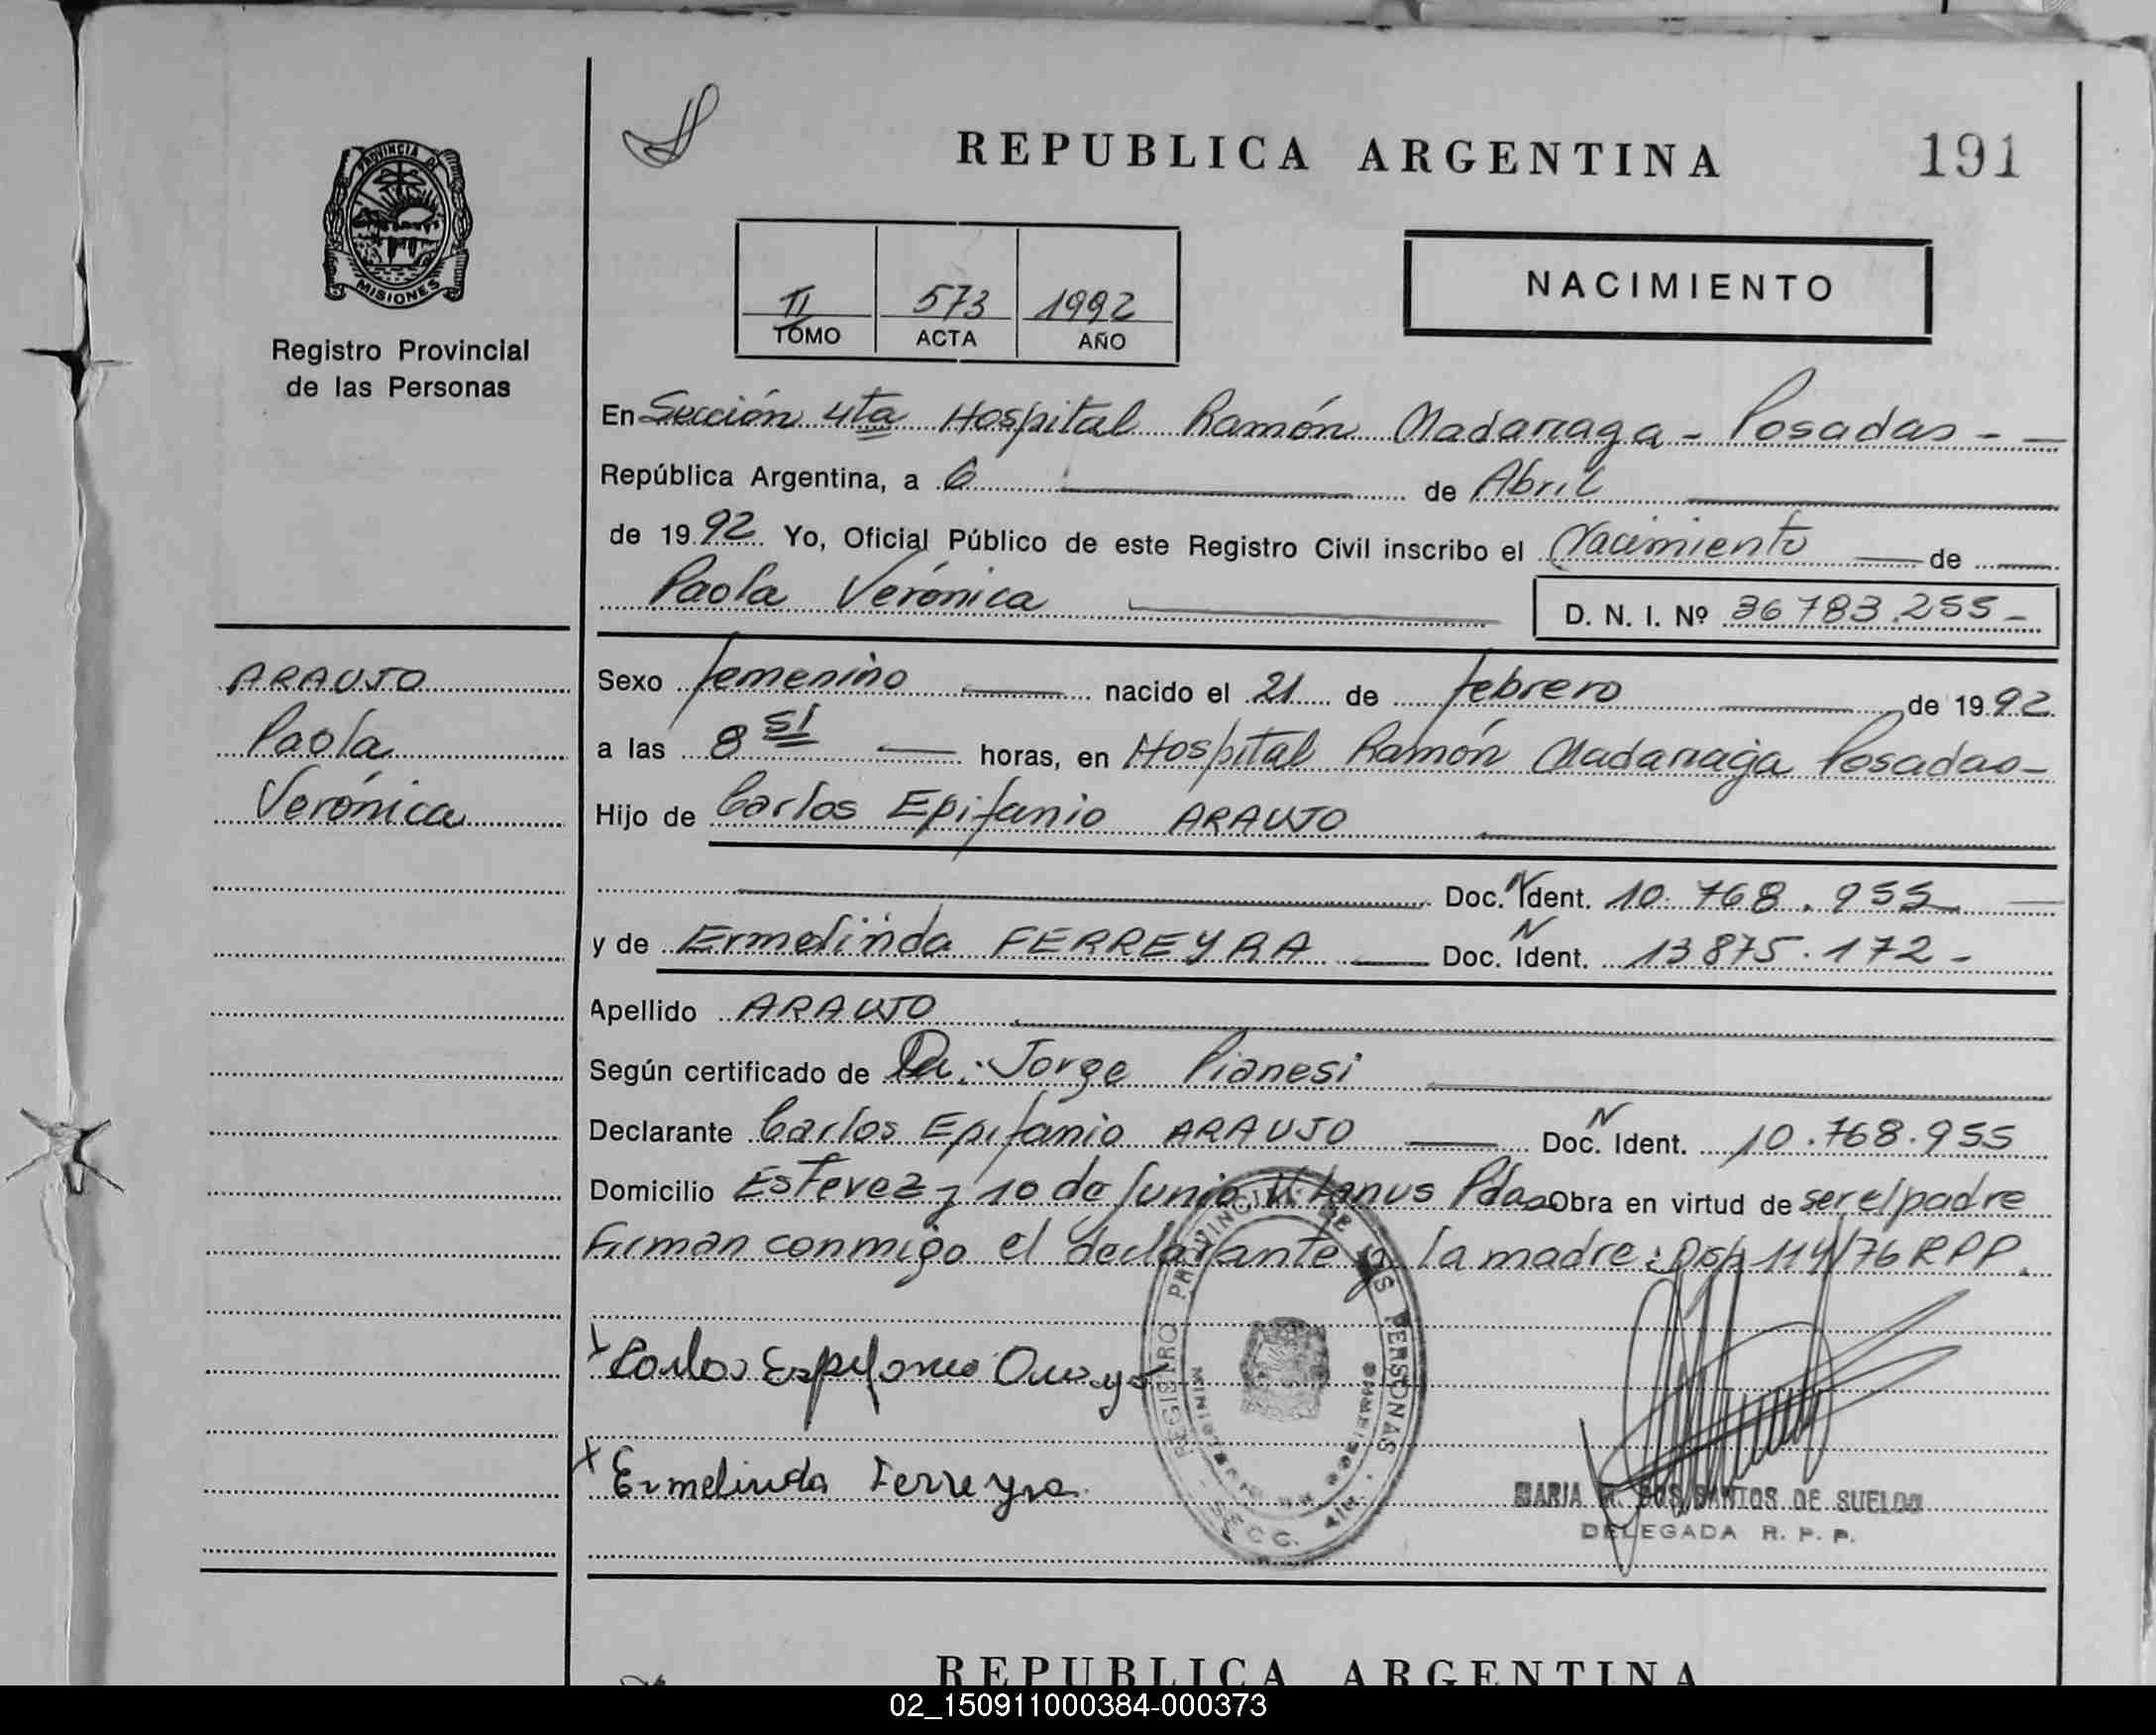 REPUBLICA ARGENTINA
191
PROVINCIA DE
MISIONES
Registro Provincial
de las Personas
II 573 1992
TOMO ACTA AÑO
NACIMIENTO
En Sección 4ta Hospital Ramón Madariaga - Posadas - -
República Argentina, a 6 de Abril
de 1992 Yo, Oficial Público de este Registro Civil inscribo el Nacimiento de
Paola Verónica
D. N. I. Nº 36783.255 -
ARAUJO
Paola
Verónica
Sexo femenino nacido el 21 de febrero de 1992
a las 8 51 horas, en Hospital Ramón Madariaga Posadas -
Hijo de Carlos Epifanio ARAUJO
Doc. N Ident. 10.768.955
y de Ermelinda FERREYRA Doc. N Ident. 13875.172 -
Apellido ARAUJO
Según certificado de Dr. Jorge Pianesi
Declarante Carlos Epifanio ARAUJO Doc. N Ident. 10.768.955
Domicilio Estevez y 10 de Junio V. Lanus Pdas Obra en virtud de ser el padre
Firman conmigo el declarante y la madre: Disp 114/76 RPP.
REGISTRO PROVINCIAL DE LAS PERSONAS
SECC. 4ta.
Ermelinda Ferreyra
MARIA DOS SANTOS DE SUELDO
DELEGADA R. P. P.
REPUBLICA ARGENTINA
02_150911000384-000373